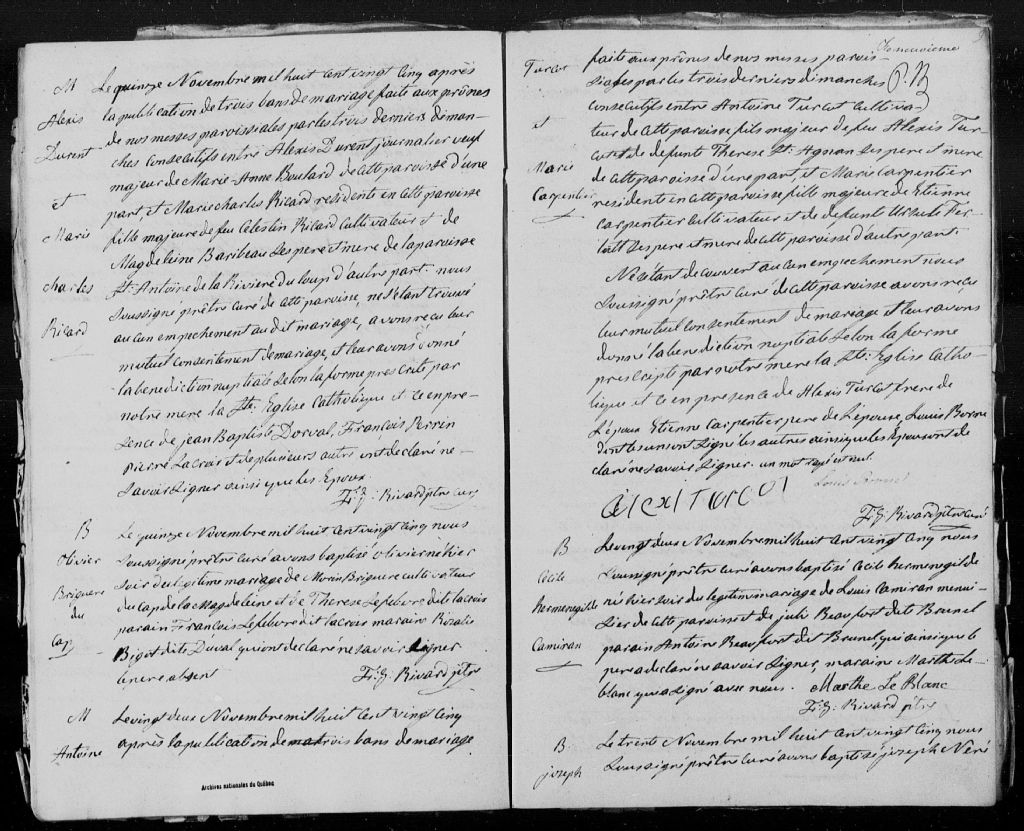 M
Alexis
Durent
et
Marie
charles
Ricard
Le quinze Novembre mil huit cent vingt cinq après
la publication de trois bans de mariage faite aux prônes
de nos messes paroissiales par les trois derniers diman-
ches consecutifs entre Alexis Durent journalier veuf
majeur de Marie-Anne Boulard de cette paroisse d'une
part, et Marie charles Ricard residente en cette paroisse
fille majeure de feu Celestin Ricard cultivateur et de
Magdeleine Baribeau ses pere et mere de la paroisse
St. Antoine de la Riviere du loup d'autre part. nous
soussigné prêtre curé de cette paroisse, ne s'etant trouvé
aucun empechement au dit mariage, avons recu leur
mutuel consentement de mariage, et leur avons donné
la benediction nuptiale selon la forme prescrite par
notre mere la Ste. Eglise Catholique et ce en pre-
sence de jean Baptiste Dorval, François Perrin
pierre Lacroix et de plusieurs autres ont declaré ne
savoir signer ainsi que les Epoux
Frs. Z: Rivard ptre curé
B
Olivier
Briguere
du
Cap
Le quinze Novembre mil huit cent vingt cinq nous
soussigné prêtre curé avons baptisé olivier né hier
soir du legitime mariage de Morin Briguere cultivateur
du Cap de la Magdeleine et de Therese Lefebvre dite lacroix
parain François Lefebvre dit lacroix maraine Rosalie
Bigot dite Duval qui ont declaré ne savoir signer
le pere absent
Frs. Z: Rivard ptre
M
Antoine
Le vingt deux Novembre mil huit cent vingt cinq
après la publication de trois bans de mariage
Archives nationales du Québec
neuvieme
Turcot
et
Marie
Carpentier
faite aux prônes de nos messes parois-
siales par les trois derniers dimanches
consecutifs entre Antoine Turcot cultiva-
teur de cette paroisse fils majeur de feu Alexis Tur-
cot et de defunte Therese St. Agnan ses pere et mere
de cette paroisse d'une part, et Marie Carpentier
residente en cette paroisse fille majeure de Etienne
Carpentier cultivateur et de defunte Ursule
ses pere et mere de cette paroisse d'autre part.
Ne s'étant decouvert aucun empechement nous
soussigné prêtre curé de cette paroisse avons recu
leur mutuel consentement de mariage et leur avons
donné la benediction nuptiale selon la forme
prescripte par notre mere la Ste. Eglise Catho-
lique et ce en presence de Alexis Turcot frere de
l'époux Etienne Carpentier pere de l'épouse, Louis
dont les uns ont signé les autres ainsi que les Epoux ont de
claré ne savoir signer. un mot rayé est nul.
Louis
alexi Turcot
Frs. Z: Rivard ptre curé
B
Cecile
hermenegilde
Camiran
Le vingt deux Novembre mil huit cent vingt cinq nous
soussigné prêtre curé avons baptisé Cecile hermenegilde
né hier soir du legitime mariage de Louis Camiran menui-
sier de cette paroisse et de julie Beaufort dite Brunel
parain Antoine Beaufort dit Brunel qui ainsi que le
pere a declaré ne savoir signer, maraine Marthe Le-
blanc qui a signé avec nous. Marthe Le Blanc
Frs. Z: Rivard ptre
B.
joseph
Le trente Novembre mil huit cent vingt cinq nous
soussigné prêtre curé avons baptisé joseph Neri